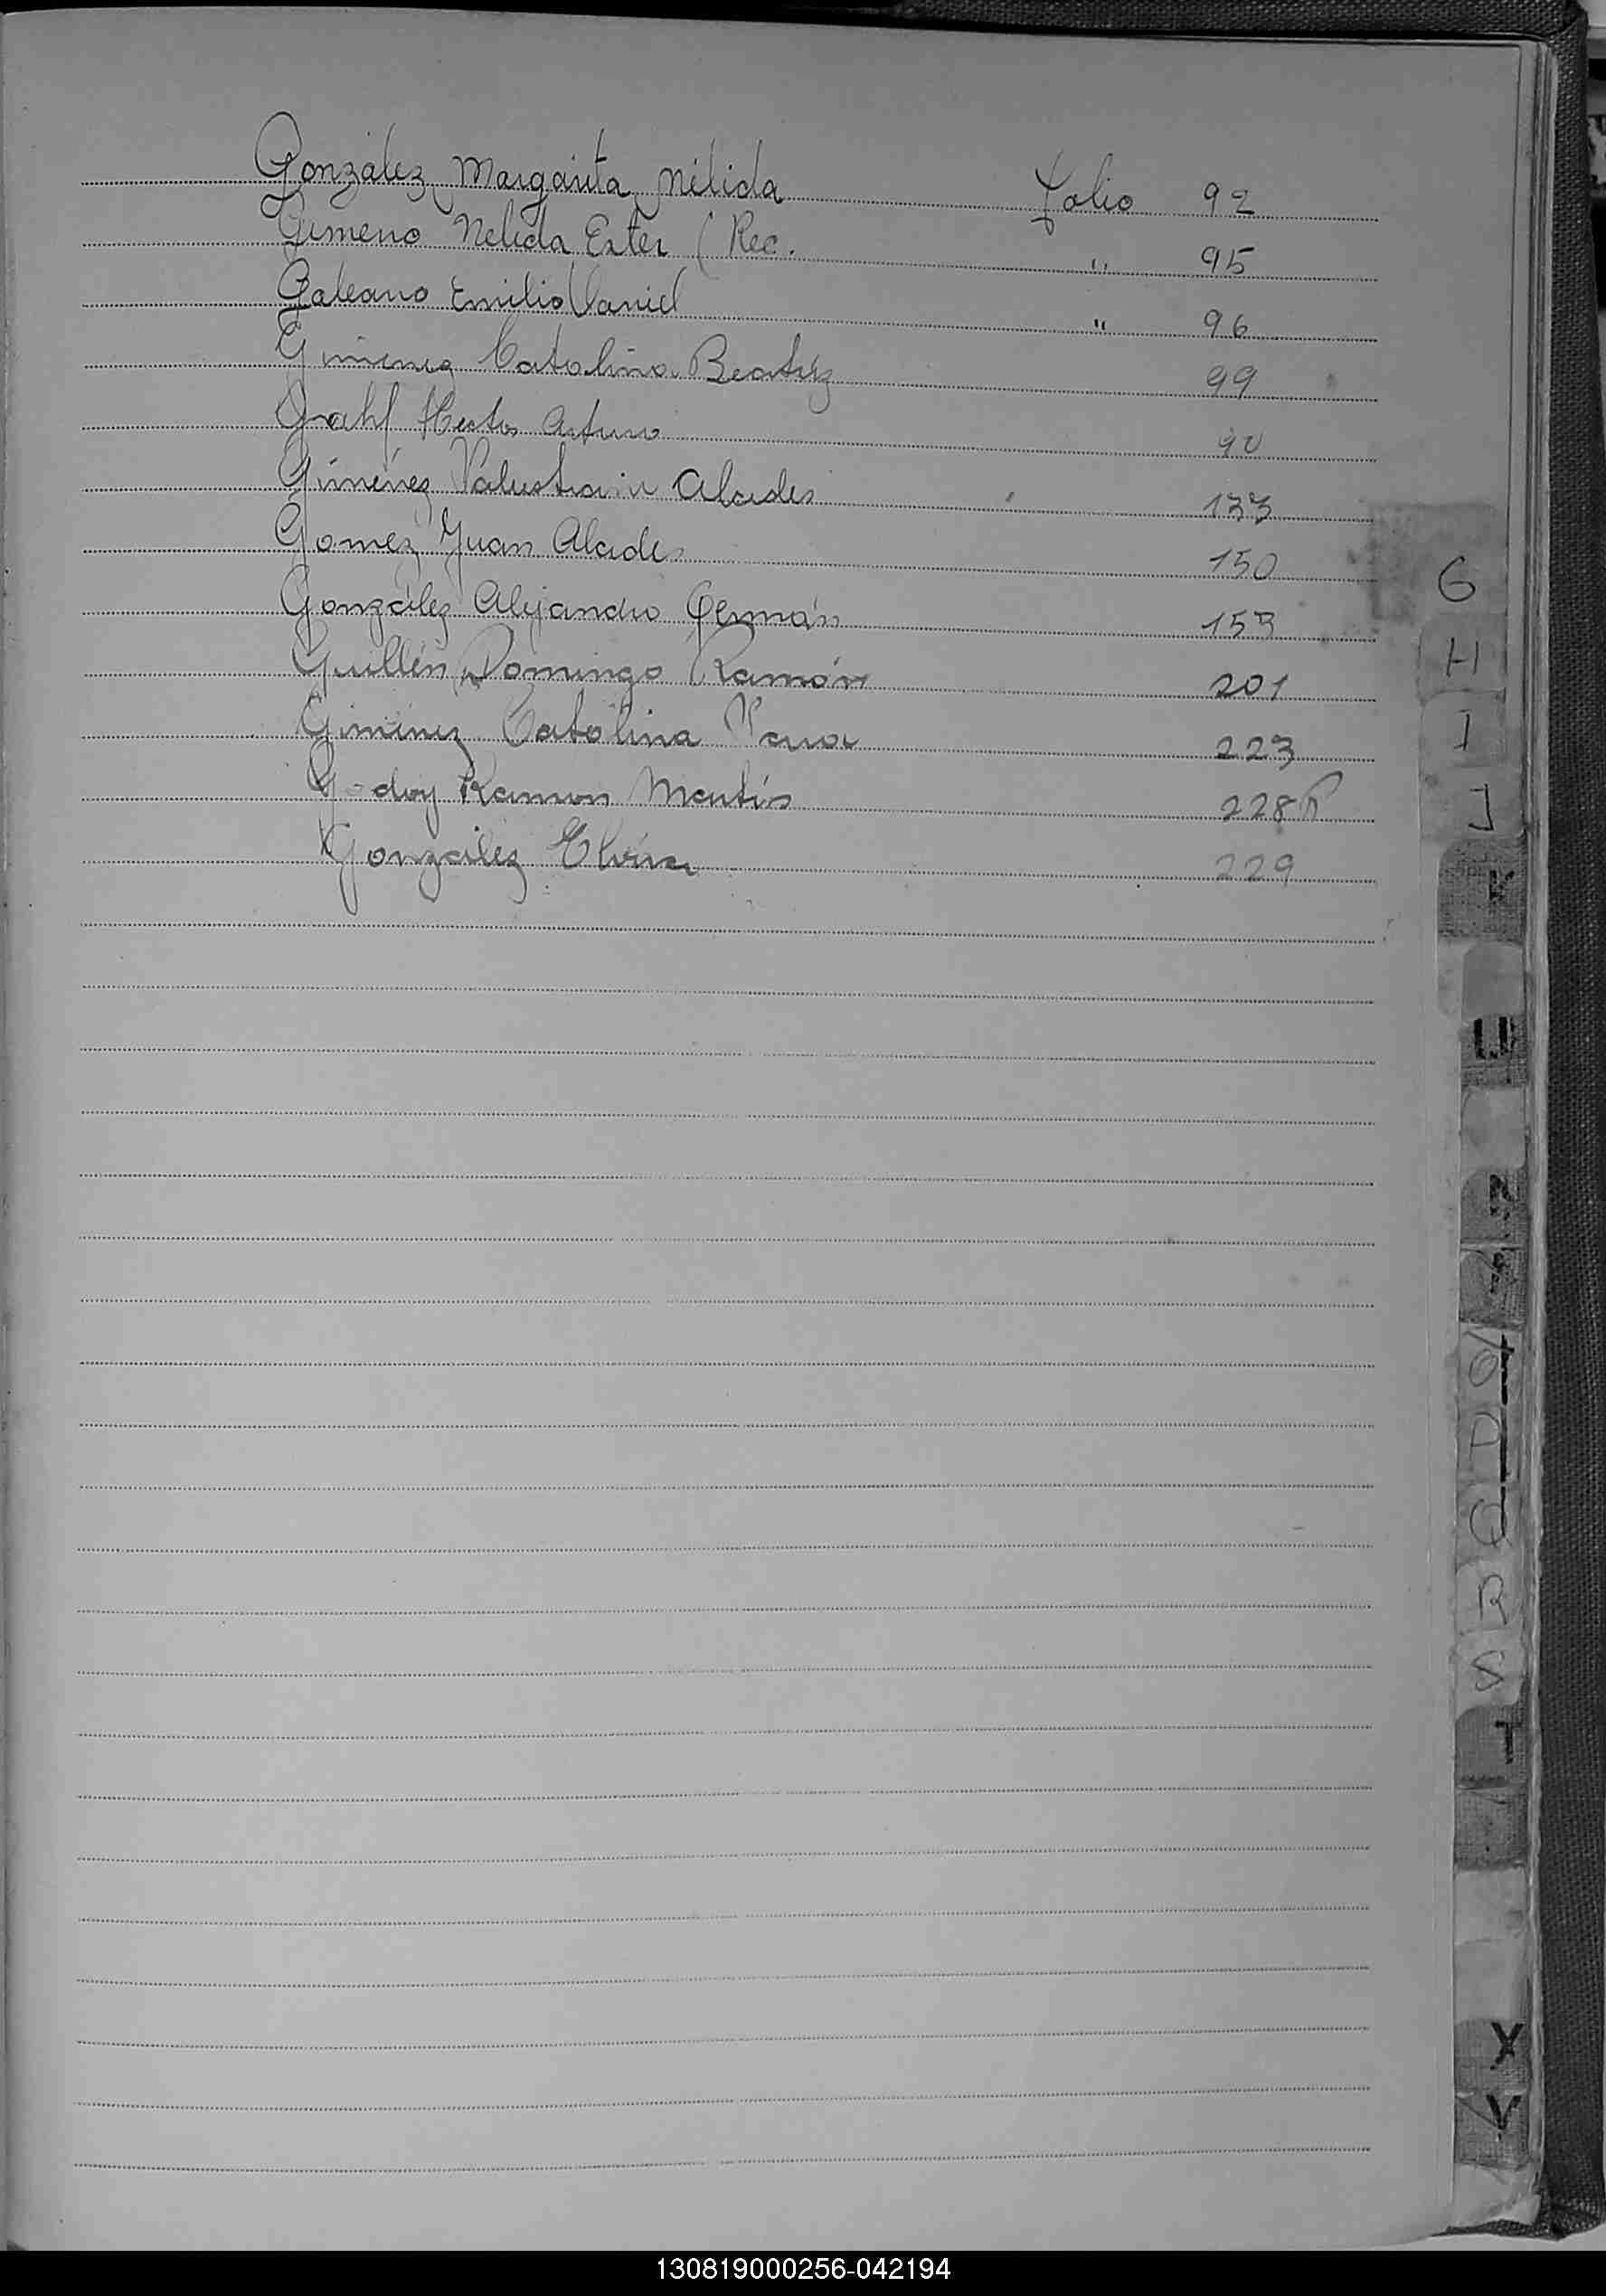 González Margarita Nélida folio 92
Gimeno Nelida Ester (Rec. " 95
Galeano Emilio Daniel " 96
Gimenez Catalina Beatriz 99
Hector Arturo 90
Giménez Alcides 133
Gomez Juan Alcides 150
González Alejandro Germán 153
Guillén Domingo Ramón 201
Giménez Catalina 223
Godoy Ramon 228
González Elvira 229
G
H
I
J
K
R
S
T
X
V
130819000256-042194